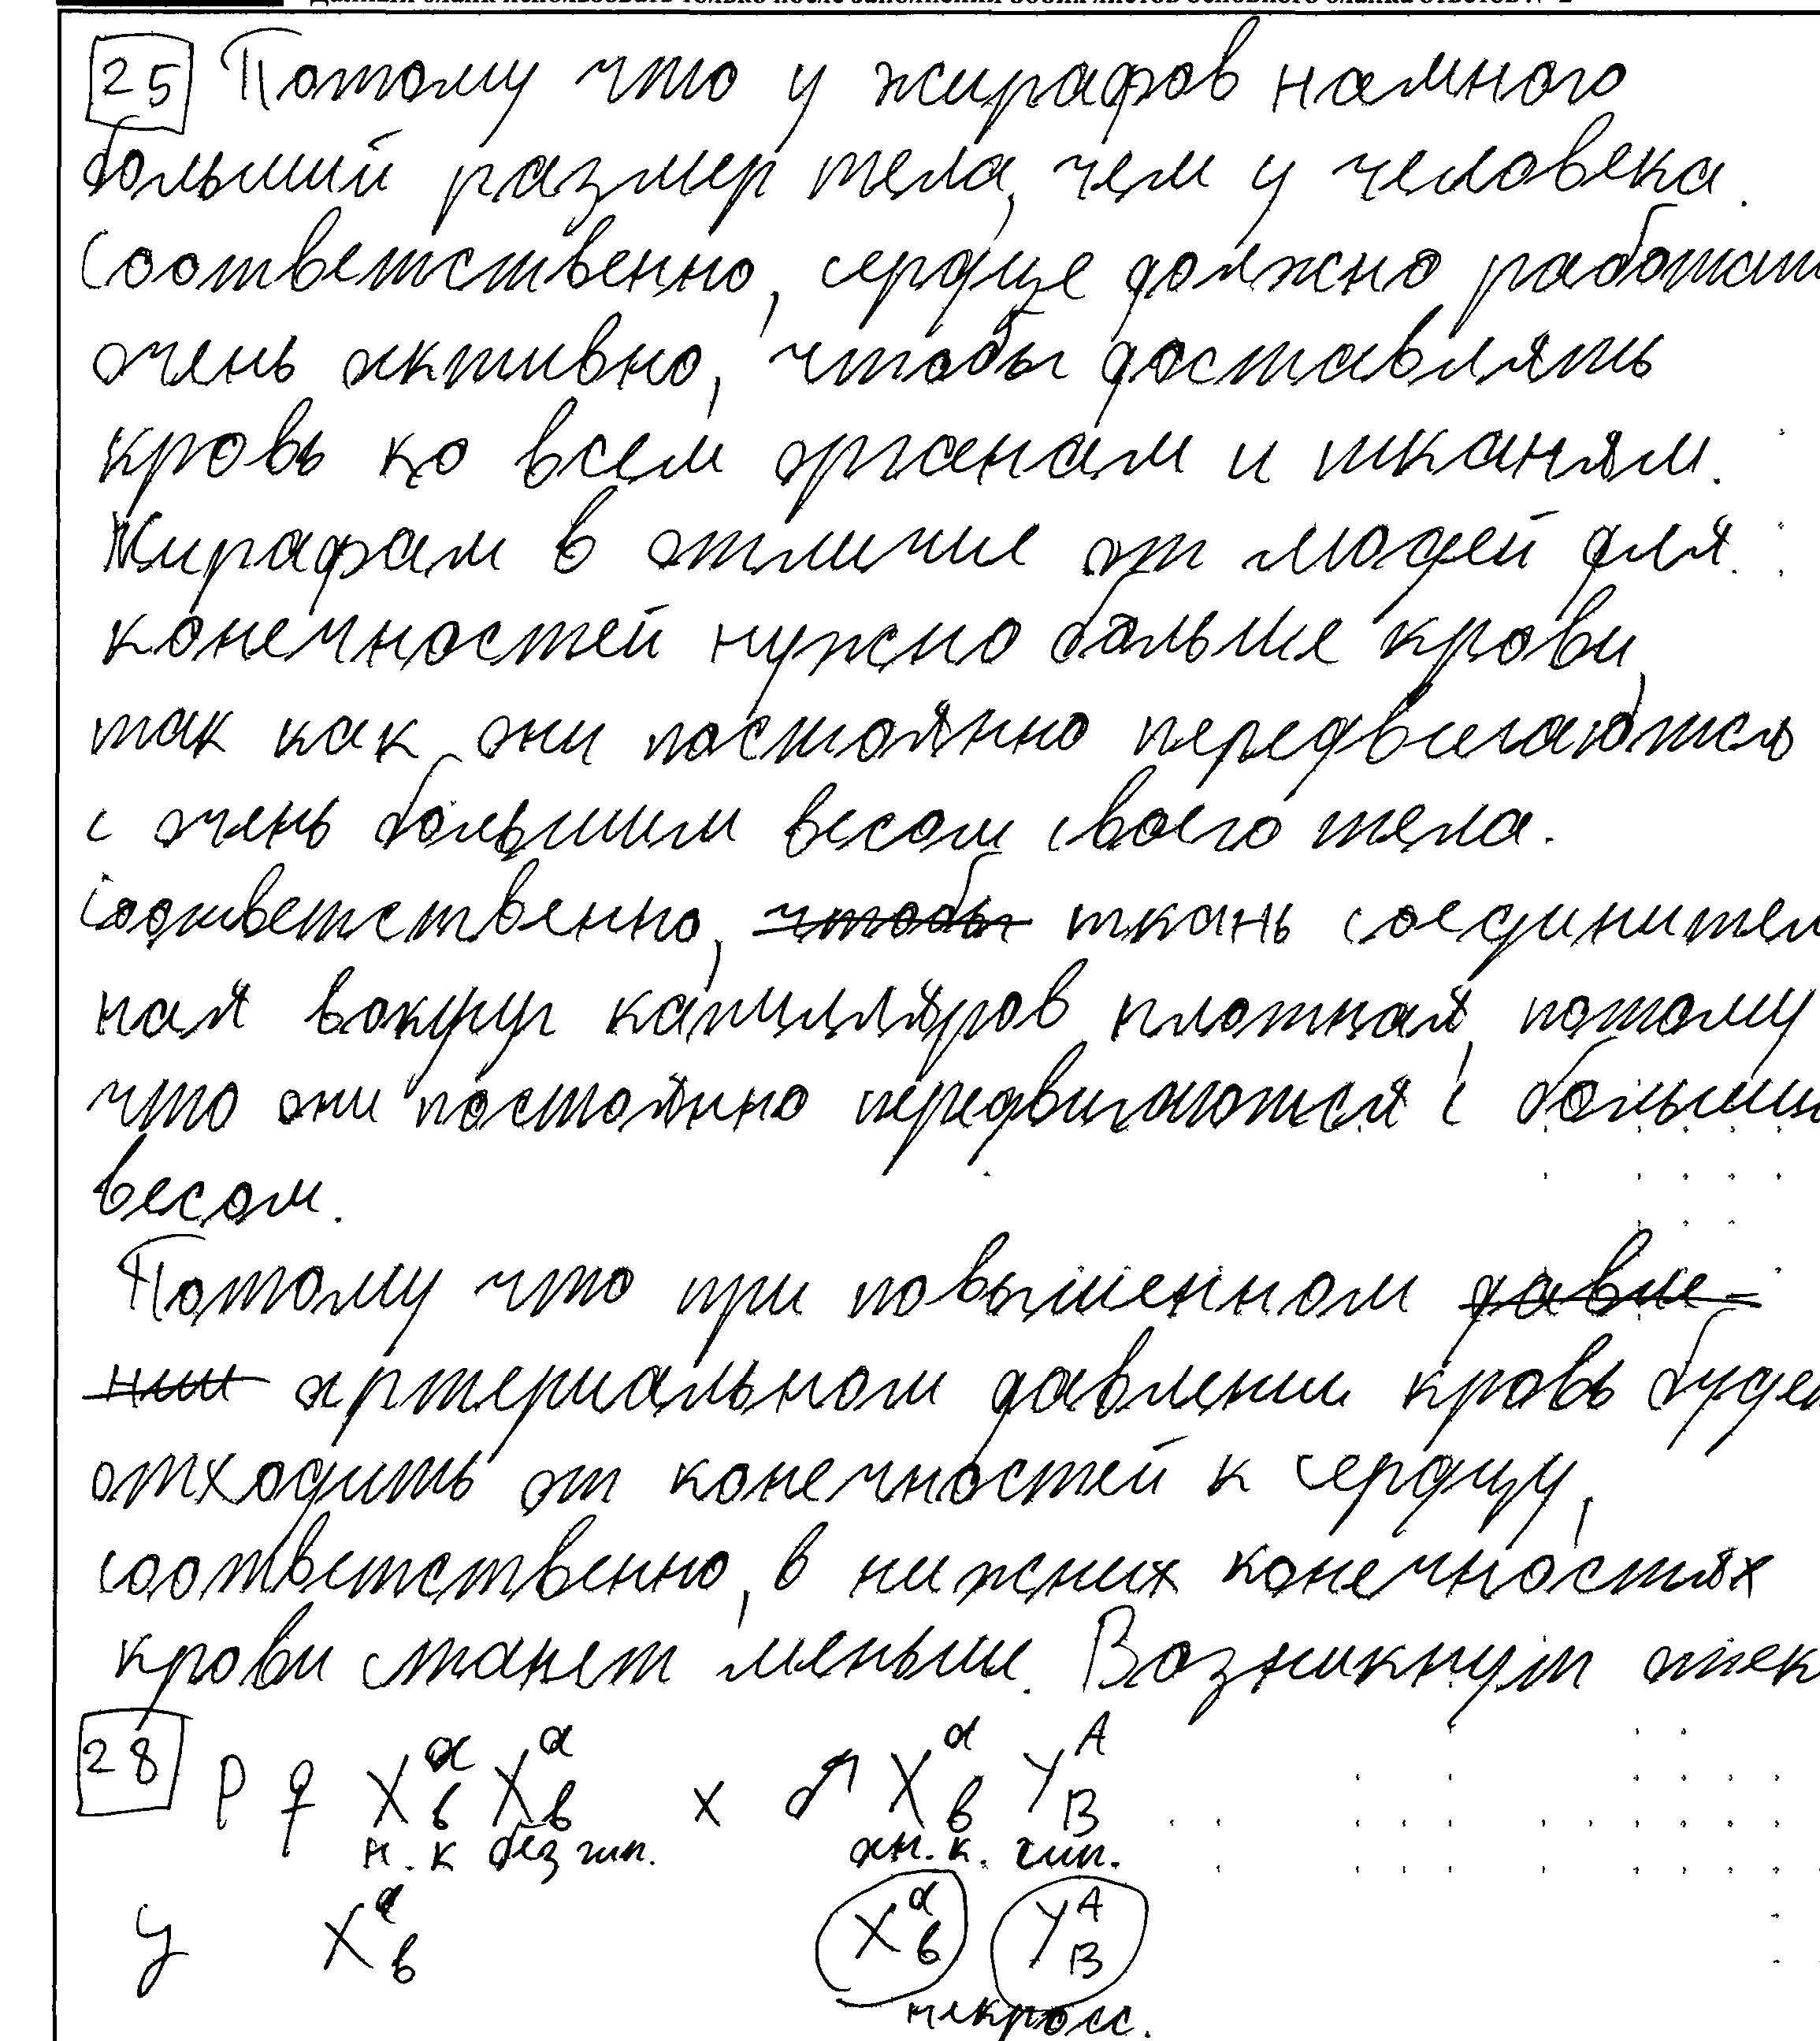 Данный бланк использовать только после заполнения обоих листов основного бланка ответов № 2
25 Потому что у жирафов намного
больший размер тела, чем у человека.
Соответственно, сердце должно работат
очень активно, чтобы доставлять
кровь ко всем органам и тканям.
Жирафам в отличие от людей для
конечностей нужно больше крови,
так как они постоянно передвигаются
с очень большим весом своего тела.
Соответственно, чтобы ткань соединител
ная вокруг капилляров плотная, потому
что они постоянно передвигаются с больши
весом.
Потому что при повышенном давле-
нии артериальном давлении кровь буде
отходить от конечностей к сердцу,
соответственно, в нижних конечностях
крови станет меньше. Возникнут отек
28 P ♀ XᵃвXᵃв x ♂ Xᵃв YᴬB
н. к без гип. ан. к. гип.
У Xᵃв Xᵃв YᴬB
некросс.